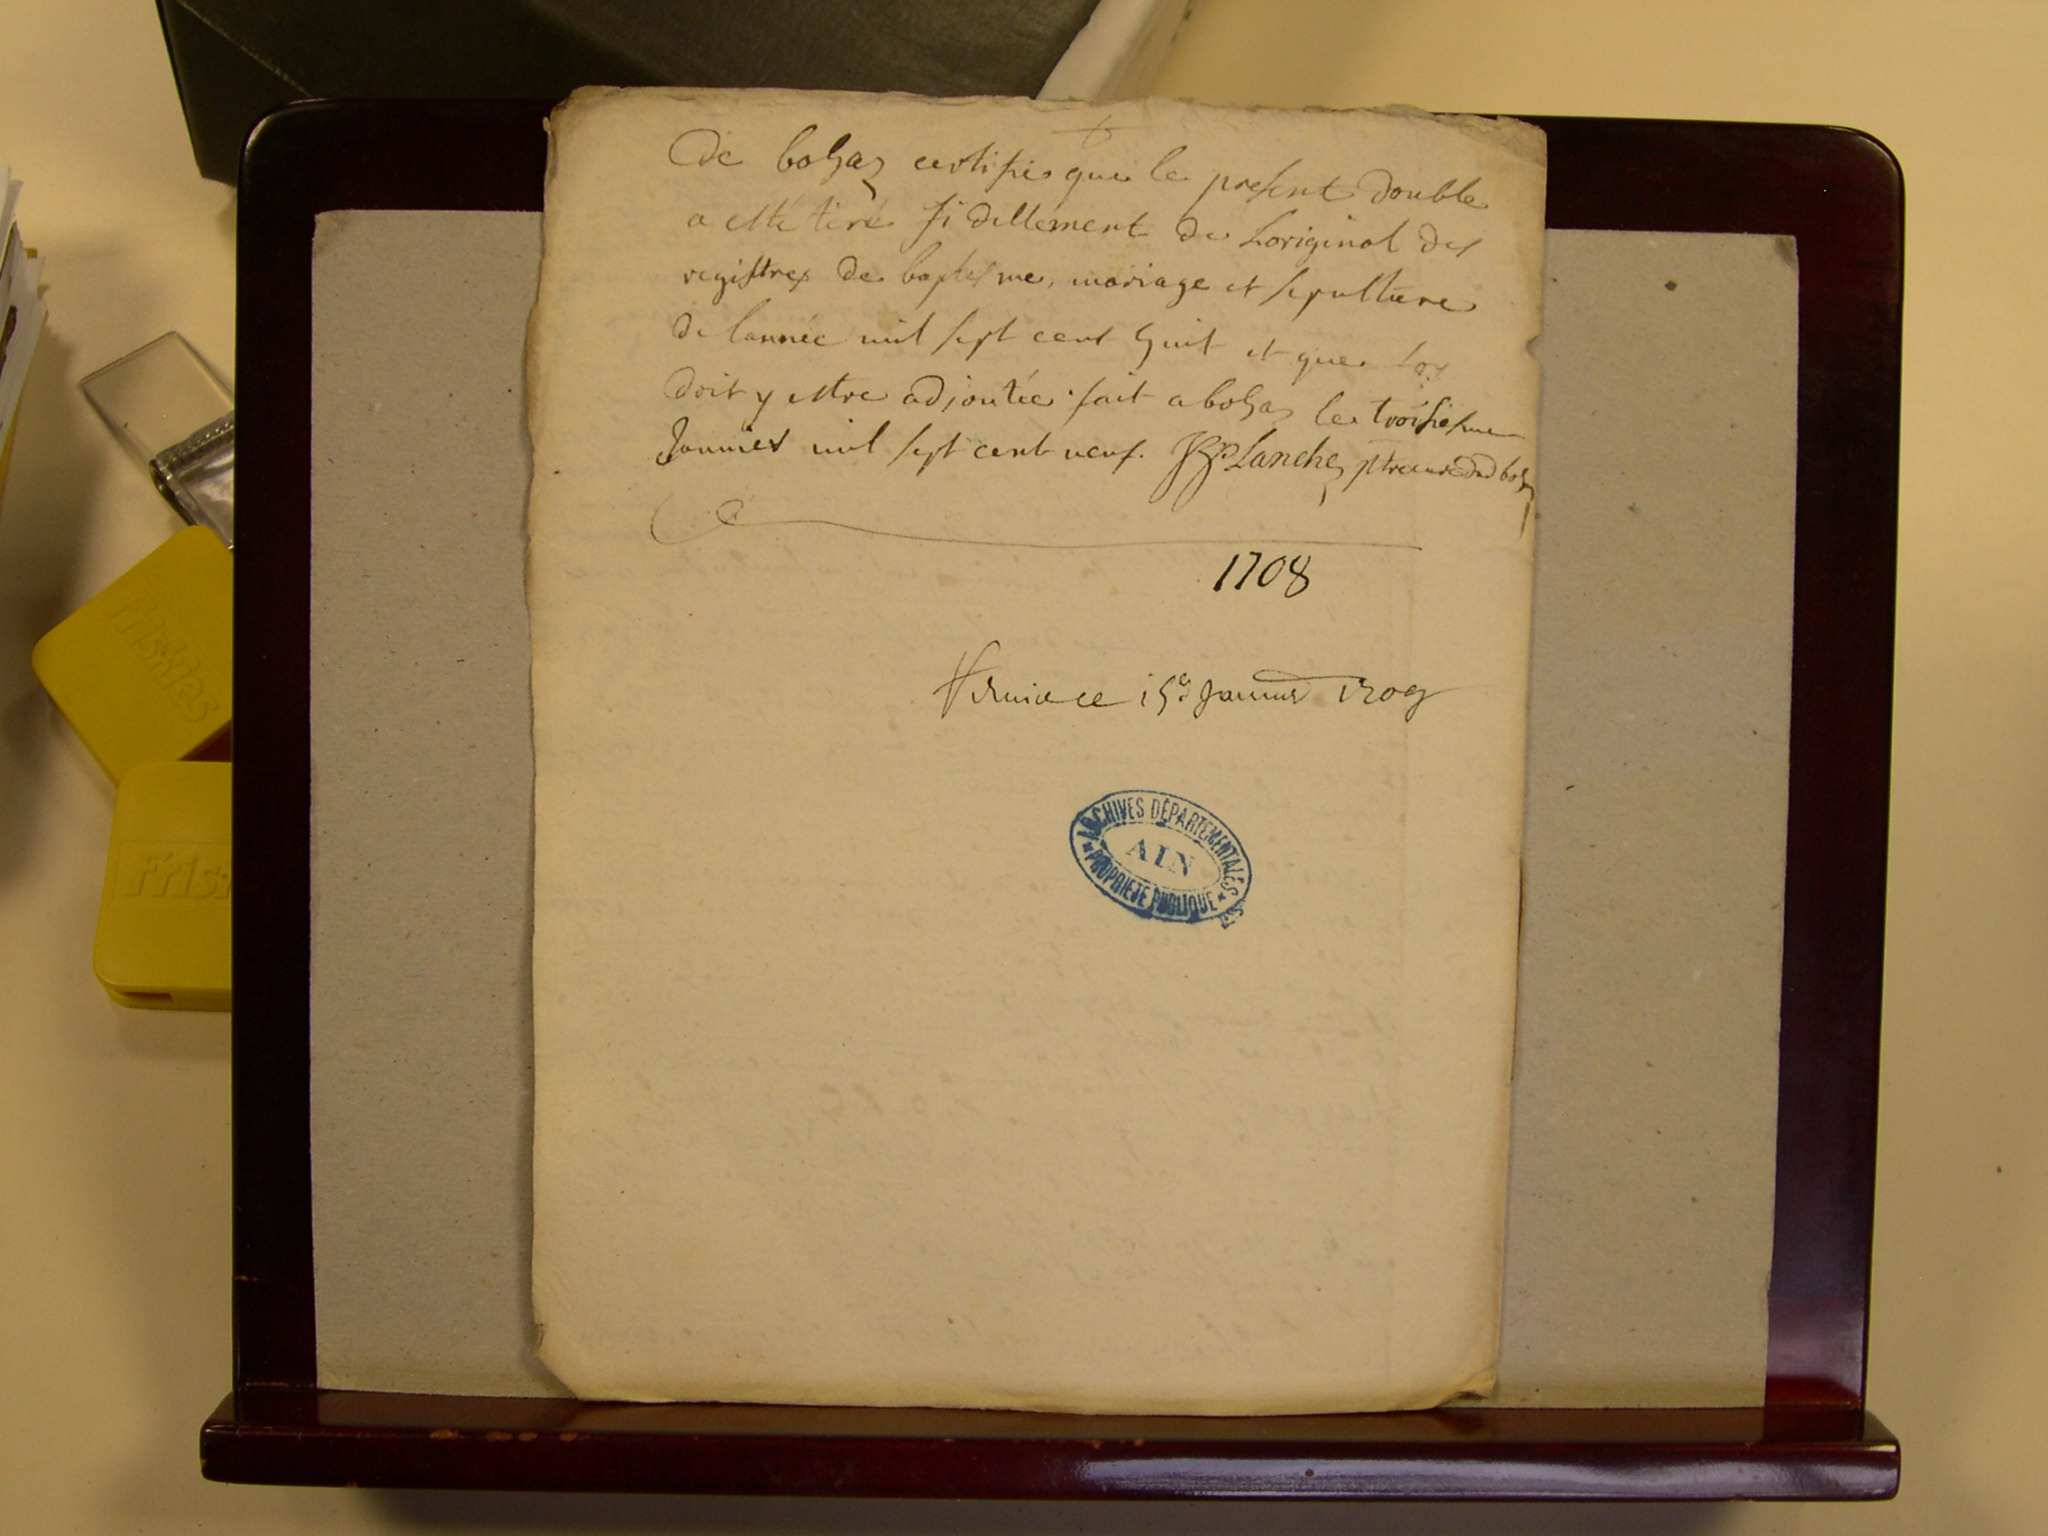 de bohas certifie que le present double
a esté tiré fidellement de Loriginal des
registres de baptesme, mariage et sepulture
de lannée mil sept cent huit et que foy
doit y estre adjoutée fait a bohas le troisiesme
Janvier mil sept cent neuf. Planche ptre curé dud bohas
1708
ce 15e Janvier 1709
ARCHIVES DÉPARTEMENTALES
AIN
PROPRIÉTÉ PUBLIQUE
Friskies
Fris